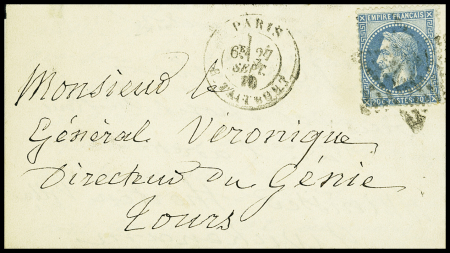 PARIS
6E 27
SEPT.
70
EMPIRE FRANÇAIS
20c POSTES 20c
Monsieur le
Général Véronique
Directeur du Génie
Tours